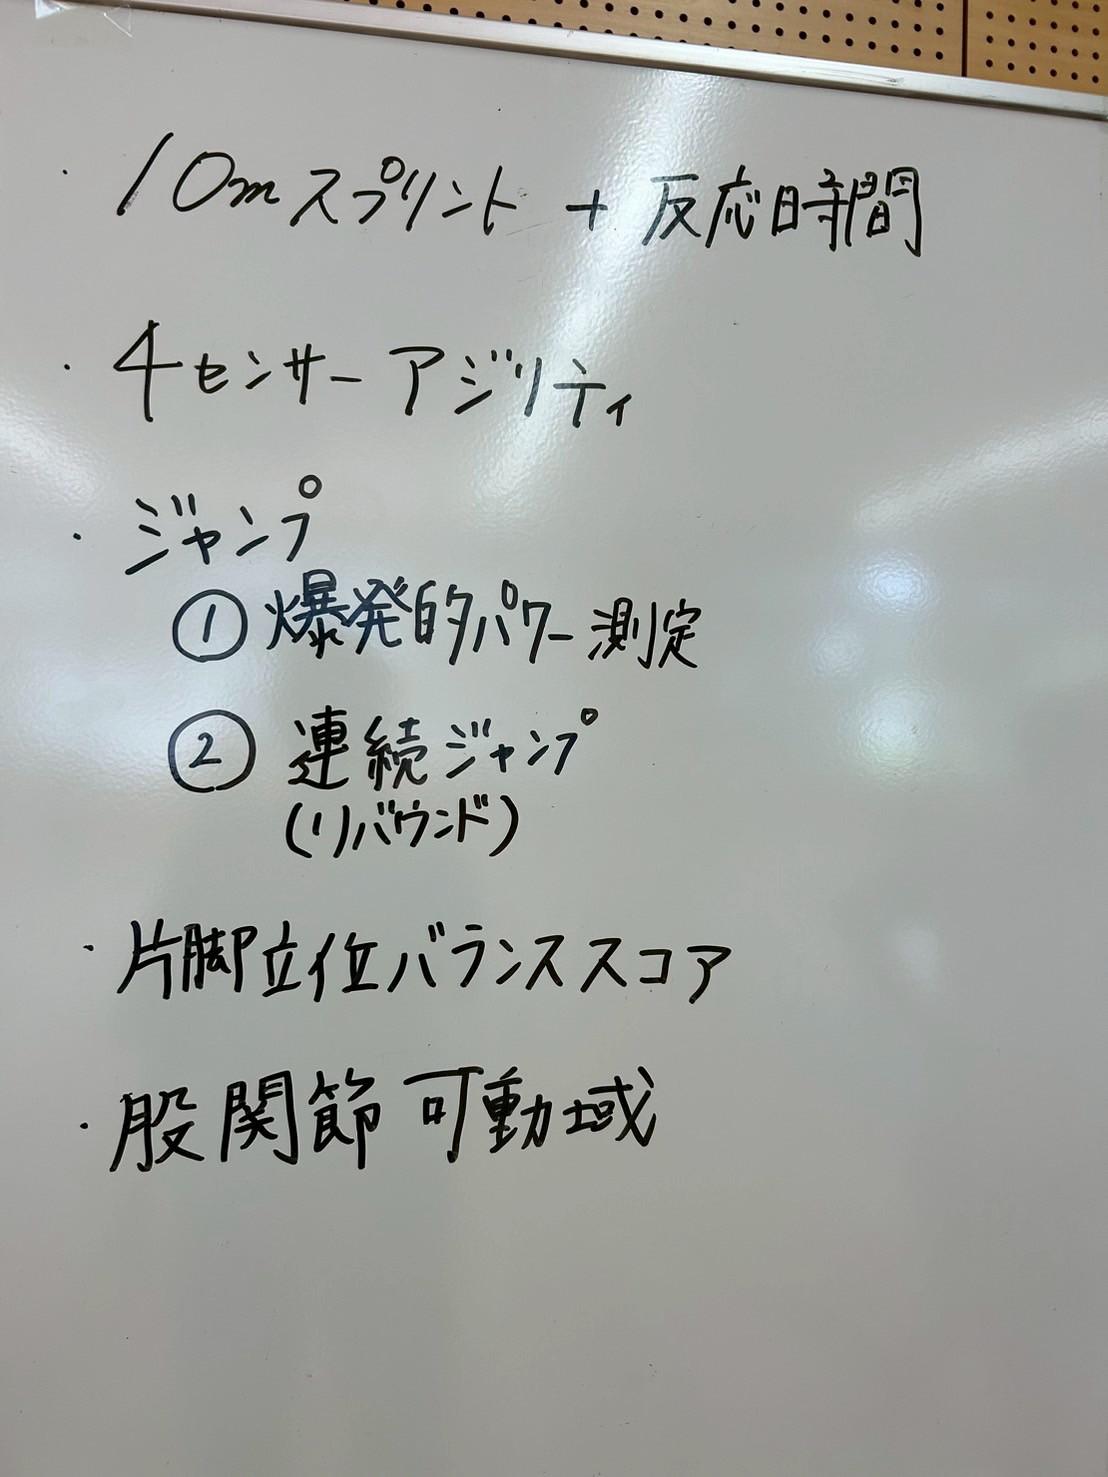 ・10mスプリント + 反応時間
・4センサーアジリティ
・ジャンプ
① 爆発的パワー測定
② 連続ジャンプ
(リバウンド)
・片脚立位バランススコア
・股関節可動域